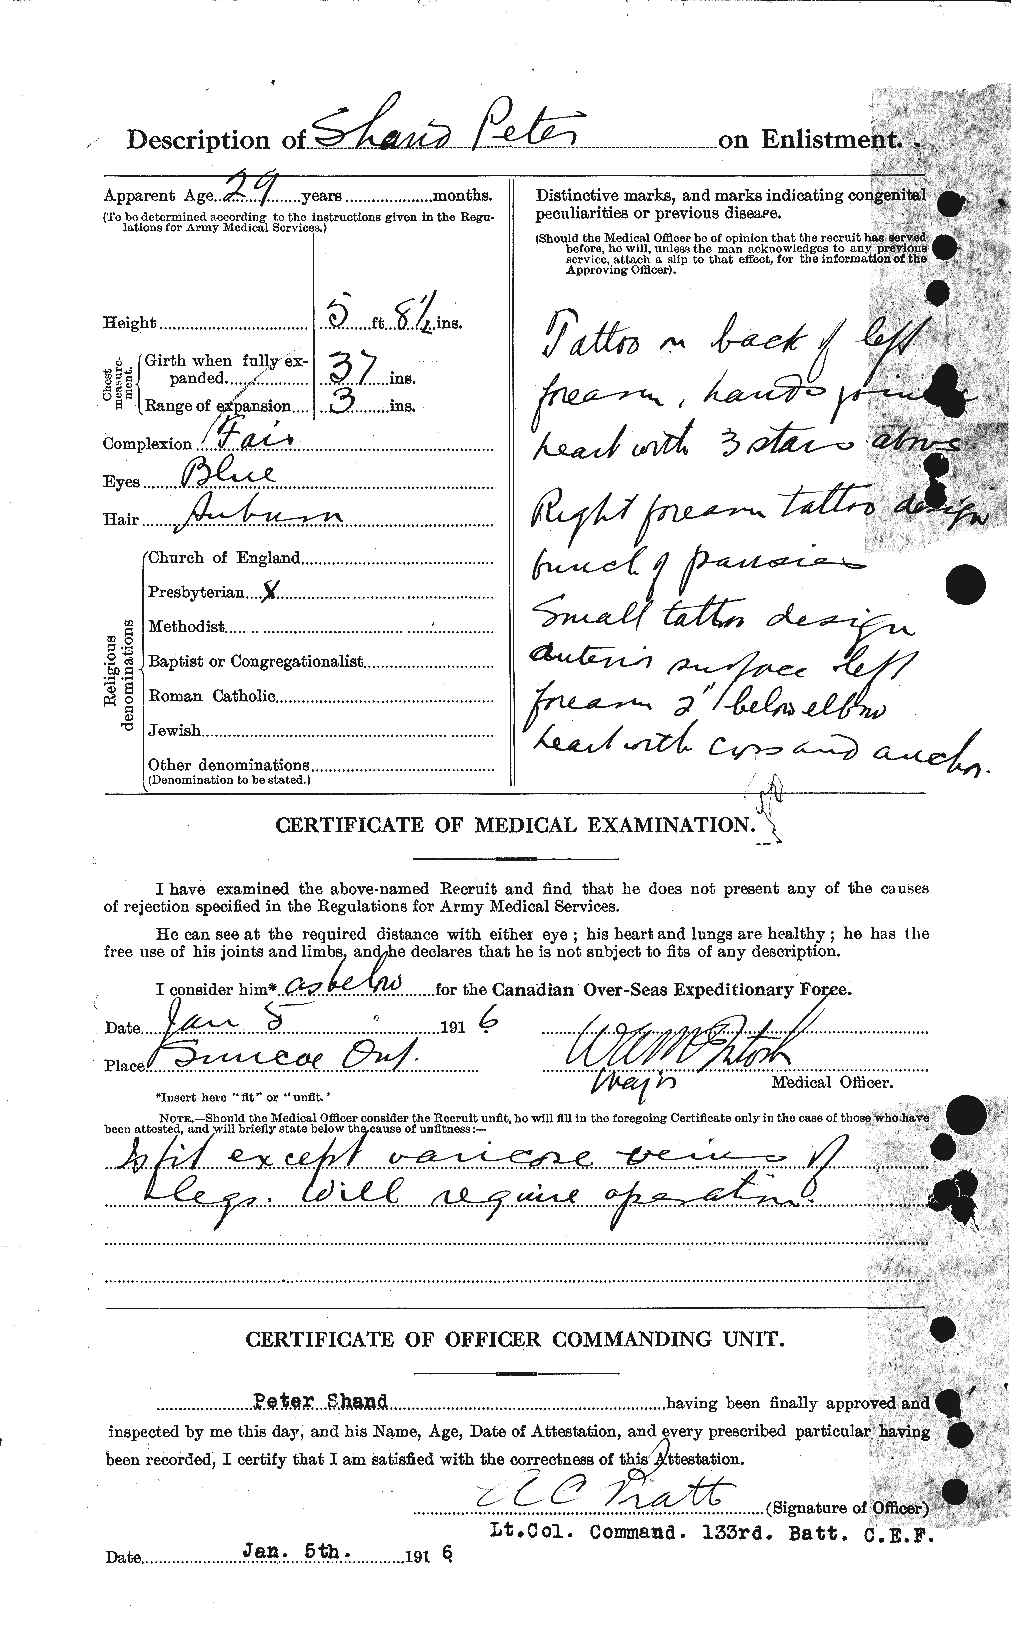 Description of Shand Peter on Enlistment.
Apparent Age 29 years months.
(To be determined according to the instructions given in the Regu-
lations for Army Medical Services.)
Height 5 ft 8½ ins.
Chest measure-
ment.
Girth when fully ex-
panded 37 ins.
Range of expansion 3 ins.
Complexion Fair
Eyes Blue
Hair Auburn
Religious denominations
Church of England
Presbyterian X
Methodist
Baptist or Congregationalist
Roman Catholic
Jewish
Other denominations
(Denomination to be stated.)
Distinctive marks, and marks indicating congenital
peculiarities or previous disease.
(Should the Medical Officer be of opinion that the recruit has served
before, he will, unless the man acknowledges to any previous
service, attach a slip to that effect, for the information of the
Approving Officer).
Tattoo on back of left
forearm, hands joined
heart with 3 stars above
Right forearm tattoo design
bunch of pansies
Small tattoo design
anterior surface left
forearm 2" below elbow
heart with cross and anchor.
CERTIFICATE OF MEDICAL EXAMINATION.
I have examined the above-named Recruit and find that he does not present any of the causes
of rejection specified in the Regulations for Army Medical Services.
He can see at the required distance with either eye ; his heart and lungs are healthy ; he has the
free use of his joints and limbs, and he declares that he is not subject to fits of any description.
I consider him* as below for the Canadian Over-Seas Expeditionary Force.
Date Jan 5 1916
Place Simcoe Ont.
W A McIntosh
Major Medical Officer.
*Insert here "fit" or "unfit."
NOTE.—Should the Medical Officer consider the Recruit unfit, he will fill in the foregoing Certificate only in the case of those who have
been attested, and will briefly state below the cause of unfitness:—
Is fit except varicose veins of
legs. Will require operation.
CERTIFICATE OF OFFICER COMMANDING UNIT.
Peter Shand having been finally approved and
inspected by me this day, and his Name, Age, Date of Attestation, and every prescribed particular having
been recorded, I certify that I am satisfied with the correctness of this Attestation.
A C Pratt (Signature of Officer)
Lt.Col. Command. 133rd. Batt. C.E.F.
Date Jan. 5th. 1916